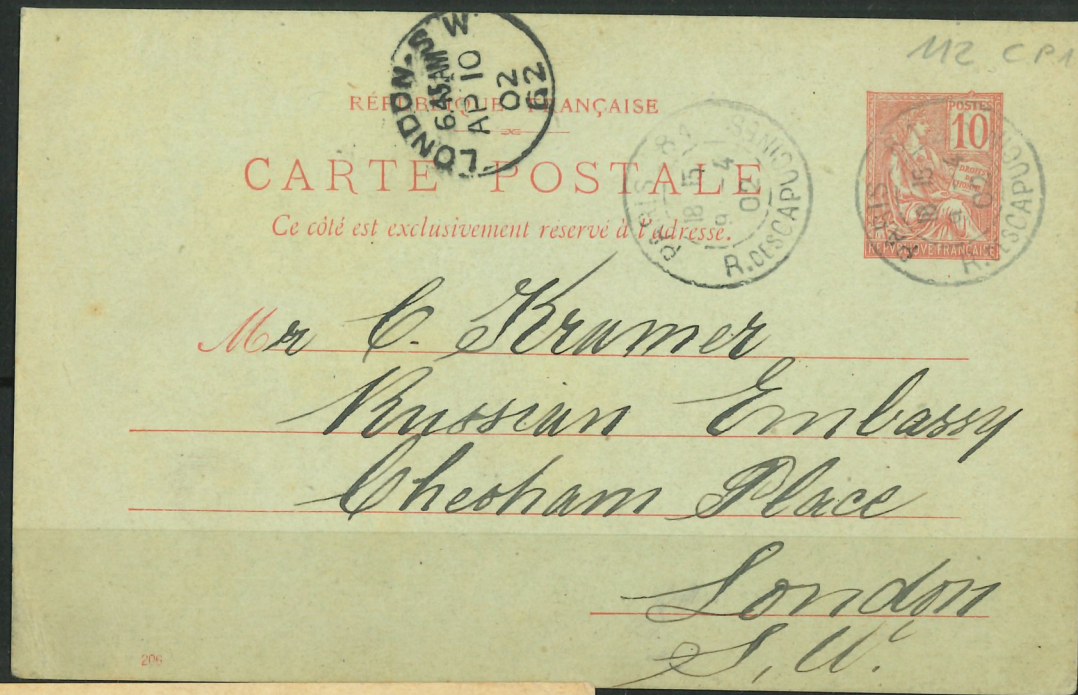 112 CP1
LONDON.S.W
6.45AM
AP 10
02
62
RÉPUBLIQUE FRANÇAISE
CARTE POSTALE
Ce côté est exclusivement réservé à l'adresse.
PARIS 84
18 15
9 -4
02
R. DES CAPUCINES
POSTES
10
DROITS
DE
L'HOMME
REPVBLIQVE FRANÇAISE
PARIS
18 15
9 4
02
R. DES CAPUCINES
Mr C. Kramer
Russian Embassy
Chesham Place
London
S. W.
206